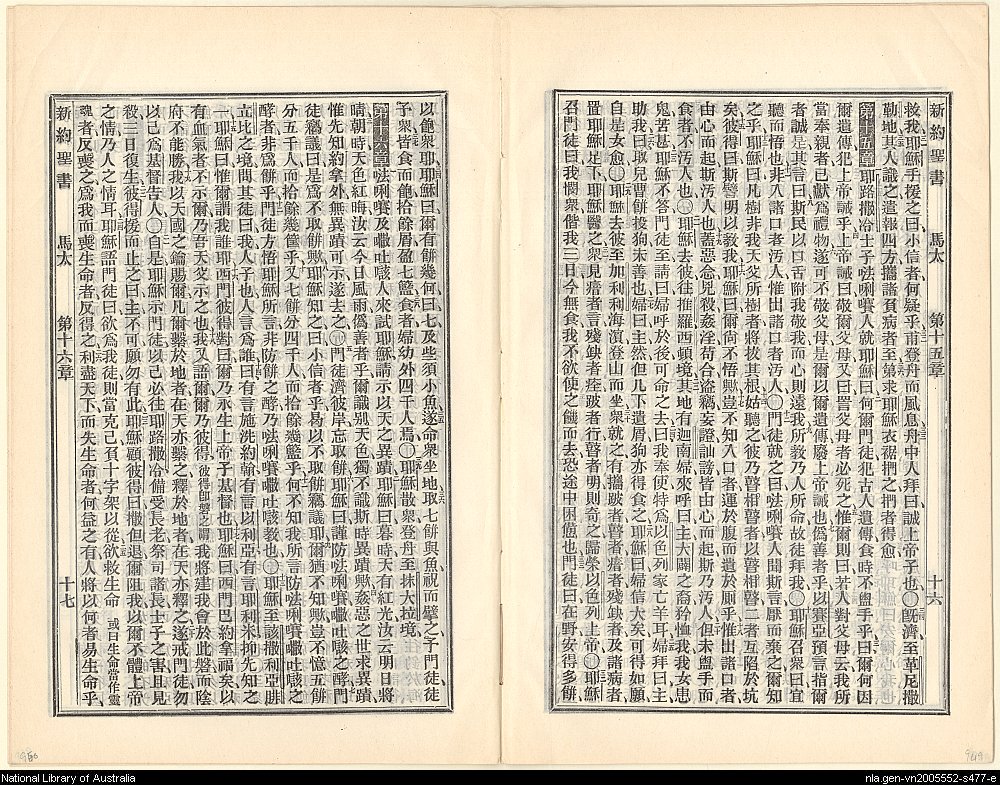 新約聖書 馬太 第十五章 十六
救我耶穌手援之曰小信者何疑乎甫登舟而風息舟中人拜曰誠上帝子也〇既濟至革尼撒
勒地其人識之遣報四方攜諸負病者至第求耶穌衣裾捫之捫者得愈
第十五章 耶路撒冷士子𠵽唎㘔人就耶穌曰何爾門徒犯古人遺傳食時不盥手乎曰爾何因
爾遺傳犯上帝誡乎上帝誡曰敬爾父母又曰詈父母者必死之惟爾則曰若人對父母云我所
當奉親者已獻爲禮物遂可不敬父母是爾以爾遺傳廢上帝誡也僞善者乎以賽亞預言指爾
者誠是其言曰斯民以口舌附我敬我而心則遠我所教乃人所命故徒拜我〇耶穌召衆曰宜
聽而悟也非入諸口者污人惟出諸口者污人〇門徒就之曰𠵽唎㘔人聞斯言厭而棄之爾知
之乎耶穌曰凡樹非我天父所樹者將拔其根姑聽之彼乃瞽相瞽者以瞽相瞽二者互陷於坑
矣彼得曰斯譬明以教我耶穌曰爾尙不悟歟豈不知入口者運於腹而遺於厠乎惟出諸口者
由心而起斯污人也蓋惡念兇殺姦淫苟合盜竊妄證訕謗皆由心而起斯乃污人但未盥手而
食者不污人也〇耶穌去彼往推羅西頓境其地有迦南婦來呼曰主大闢之裔矜恤我我女患
鬼苦甚耶穌不答門徒至請曰婦呼於後可命之去曰我奉使特爲以色列家亡羊耳婦拜曰主
助我曰取兒曹餅投狗未善也婦曰主然但几下遺屑狗亦得食之耶穌曰婦信大矣可得如願
自是女愈〇耶穌去彼至加利利海濱登山而坐衆就之有攜跛者瞽者瘖者殘缺者及諸病者
置耶穌足下耶穌醫之衆見瘖者言殘缺者痊跛者行瞽者明則奇之歸榮以色列上帝〇耶穌
召門徒曰我憫衆偕我三日今無食我不欲使之饑而去恐途中困憊也門徒曰在野安得多餅
以飽衆耶耶穌曰爾有餅幾何曰七及些須小魚遂命衆坐地取七餅與魚祝而擘之予門徒徒
予衆皆食而飽拾餘屑盈七籃食者婦幼外四千人焉〇耶穌散衆登舟至抹大拉境
第十六章 𠵽唎㘔及𡂼吐咳人來試耶穌請示以天之異蹟耶穌曰暮時天有紅光汝云明日將
晴朝時天色紅晦汝云今日風雨僞善者乎爾識別天色獨不識斯時異蹟歟姦惡之世求異蹟
惟先知約拿外無異蹟可示遂去之〇門徒濟彼岸忘取餅耶穌曰謹防𠵽唎㘔𡂼吐咳之酵門
徒竊議曰是爲不取餅歟耶穌知之曰小信者乎曷以不取餅竊議耶爾猶不知歟豈不憶五餅
分五千人而拾餘幾筐乎又七餅分四千人而拾餘幾籃乎何不知我所言防𠵽唎㘔𡂼吐咳之
酵者非爲餅乎門徒方悟耶穌所言非防餅之酵乃𠵽唎㘔𡂼吐咳教也〇耶穌至該撒利亞腓
立比之境問其徒曰我人子也人言爲誰曰有言施洗約翰有言以利亞有言耶利米抑先知之
一耶穌曰惟爾謂我誰耶西門彼得對曰爾乃永生上帝子基督也耶穌曰西門巴約拿福矣以
有血氣者不示爾乃吾天父示之也我又語爾爾乃彼得 彼得即磐之謂 我將建我會於此磐而陰
府不能勝我以天國之鑰賜爾凡爾繫於地者在天亦繫之釋於地者在天亦釋之遂戒門徒勿
以己爲基督告人〇自是耶穌示門徒以己必往耶路撒冷備受長老祭司諸長士子之害且見
殺三日復生彼得援而止之曰主不可願勿有此耶穌顧彼得曰撒但退爾阻我以爾不體上帝
之情乃人之情耳耶穌語門徒曰欲爲我徒則當克己負十字架以從欲救生命 或曰生命當作靈
魂 者反喪之爲我而喪生命者反得之利盡天下而失生命者何益之有人將以何者易生命乎
新約聖書 馬太 第十六章 十七
National Library of Australia
nla.gen-vn2005552-s477-e